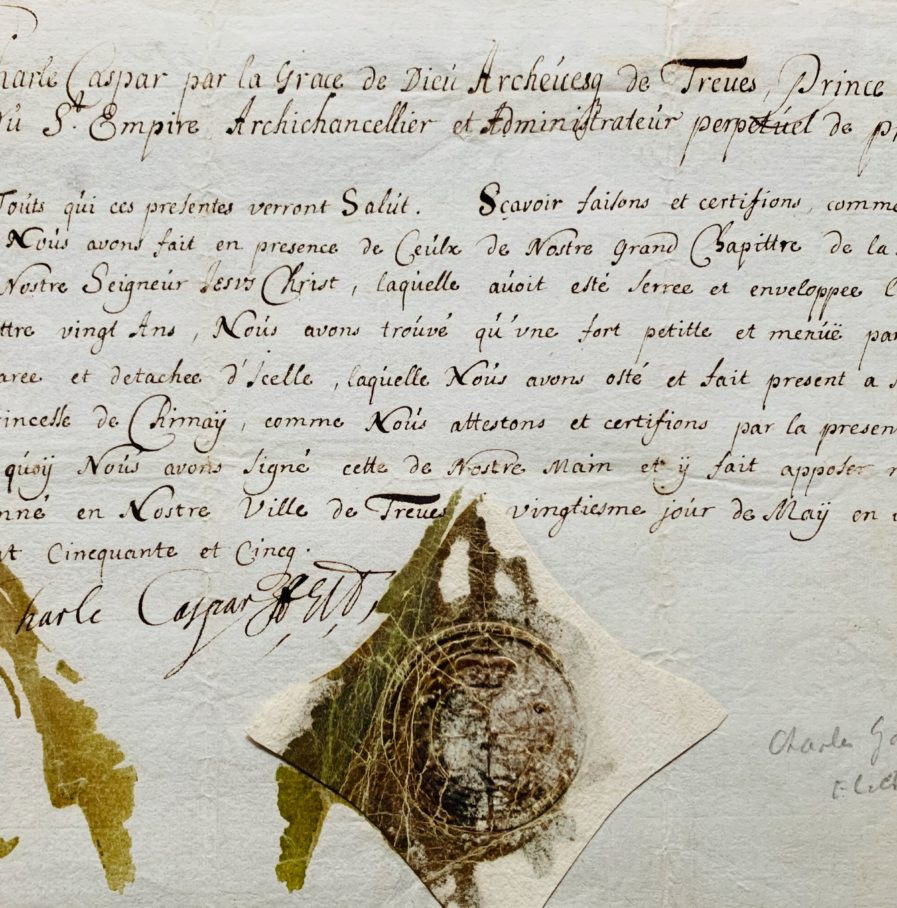 Charle Caspar par la Grace de Dieu Archevesq de Treves, Prince
Du St. Empire Archichancellier et Administrateur perpetuel de
Touts qui ces presentes verront Salut. Sçavoir faisons et certifions, comme
Nous avons fait en presence de Ceulx de Nostre Grand Chapittre de la
Nostre Seigneur Jesus Christ, laquelle auoit esté serree et enveloppee
ttre vingt Ans, Nous avons trouvé qu'vne fort petitte et menuë par
aree et detachee d'Icelle, laquelle Nous avons osté et fait present a
rincesse de Chimaÿ, comme Nous attestons et certifions par la presen
quoÿ Nous avons signé cette de Nostre Main et ÿ fait apposer
nné en Nostre Ville de Treves vingtiesme jour de Maÿ en
nt Cincquante et Cincq.
Charle Caspar
Charles